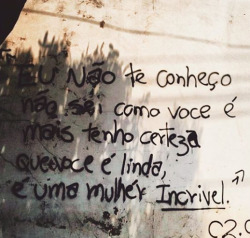 "EU Não te conheço
não sei como voce é
mais tenho certeza
que voce é linda,
é uma mulher Incrivel."